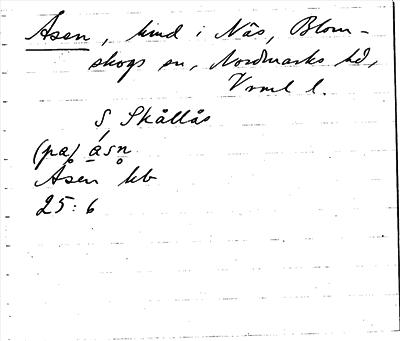 Åsen, hmd i Näs, Blom-
skogs sn, Nordmarks hd,
Vrml l.
S Skållås
(på) åsn
Åsen kb
25:6